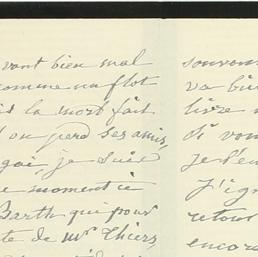 vont bien mal
comme un flot
la mort fait
on perd ses amis,
gai, je suis
moment ci
Barth qui pour
te de Mr Thiers
souvent
va bi
livre
si vou
je l'en
J'ign
retour
encore